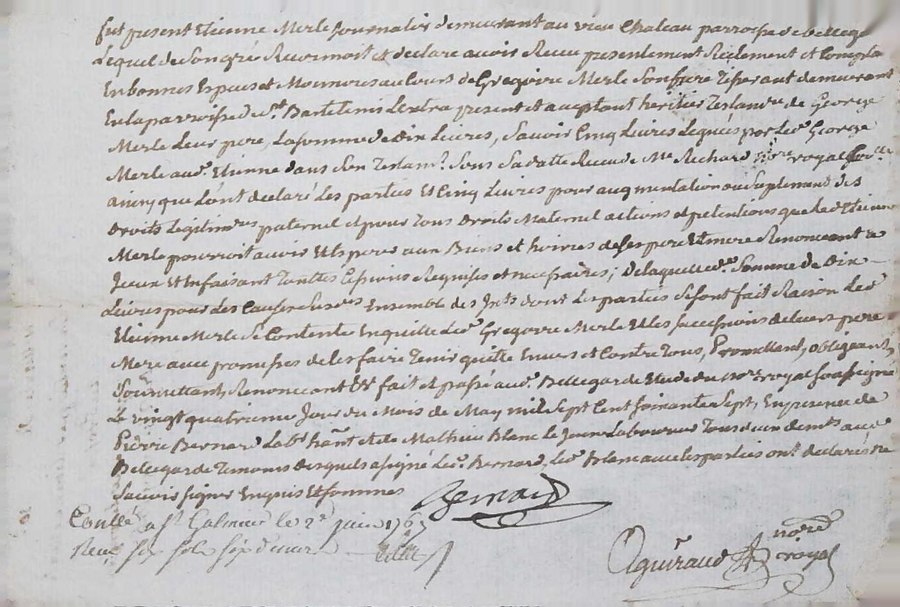 fut present Etienne Merle Journalier demeurant au vieu Chateau parroisse de bellegde
Lequel de Son gré Reconnoit et declare avoir Receu presentement Réelement et Compta
En bonnes Espuces et Monnoies au Cours de Gregoire Merle Son frere Tisserant demeurant
En la parroisse de St. Bartelemis Lextra present et acceptant heritier Testamre de George
Merle Leur pere, La Somme de Dix Livres, Savoir Cinq Livres Legués par Led. George
Merle aud. Etienne dans Son Testamt. Sous Sa datte Receu de Me Richard notre royal
ainsy que L'ont declaré Les parties Et Cinq Livres pour augmentation ou Suplement des
Droits Legitimres paternel et pour Tous Droits Maternel actions et petentions que Led Etienne
Merle pourroit avoir Et Esperer aux Biens et hoiries de Ses pere Et mere Renonceant a
Iceux Et En faisant Touttes Cessions Requises et necessaires; de laquelle de. Somme de Dix
Livres pour les Causes Susdes Ensemble des Jnts dont Les parties Se Sont fait Raison Led
Etienne Merle Se Contente En quitte Led. Gregoire Merle Et les Successions de Leurs pere
Mere avec promesses de les faire Tenir quitte Envers et Contre Tous, Promettant, obligeant,
Soumettant, Renonceant &c fait et passé aud. Bellegarde Etude du notre royal Soussigné
Le vingt quatrieme Jour du Mois de May mil Sept Cent Soixante Sept, En presence de
Pierre Bernard Labr hant et de Mathieu Blanc le Jeune Laboureur Tous deux demts aud
Bellegarde Temoins desquels a Signé Led. Bernard, Led Blanc avec les parties ont declarés ne
Savoir Signer Enquis Et Sommes
Bernard
Conllé a St Galmier le 2e juin 1767
Receu Six Sols Six deniers
Aguiraud notre royal